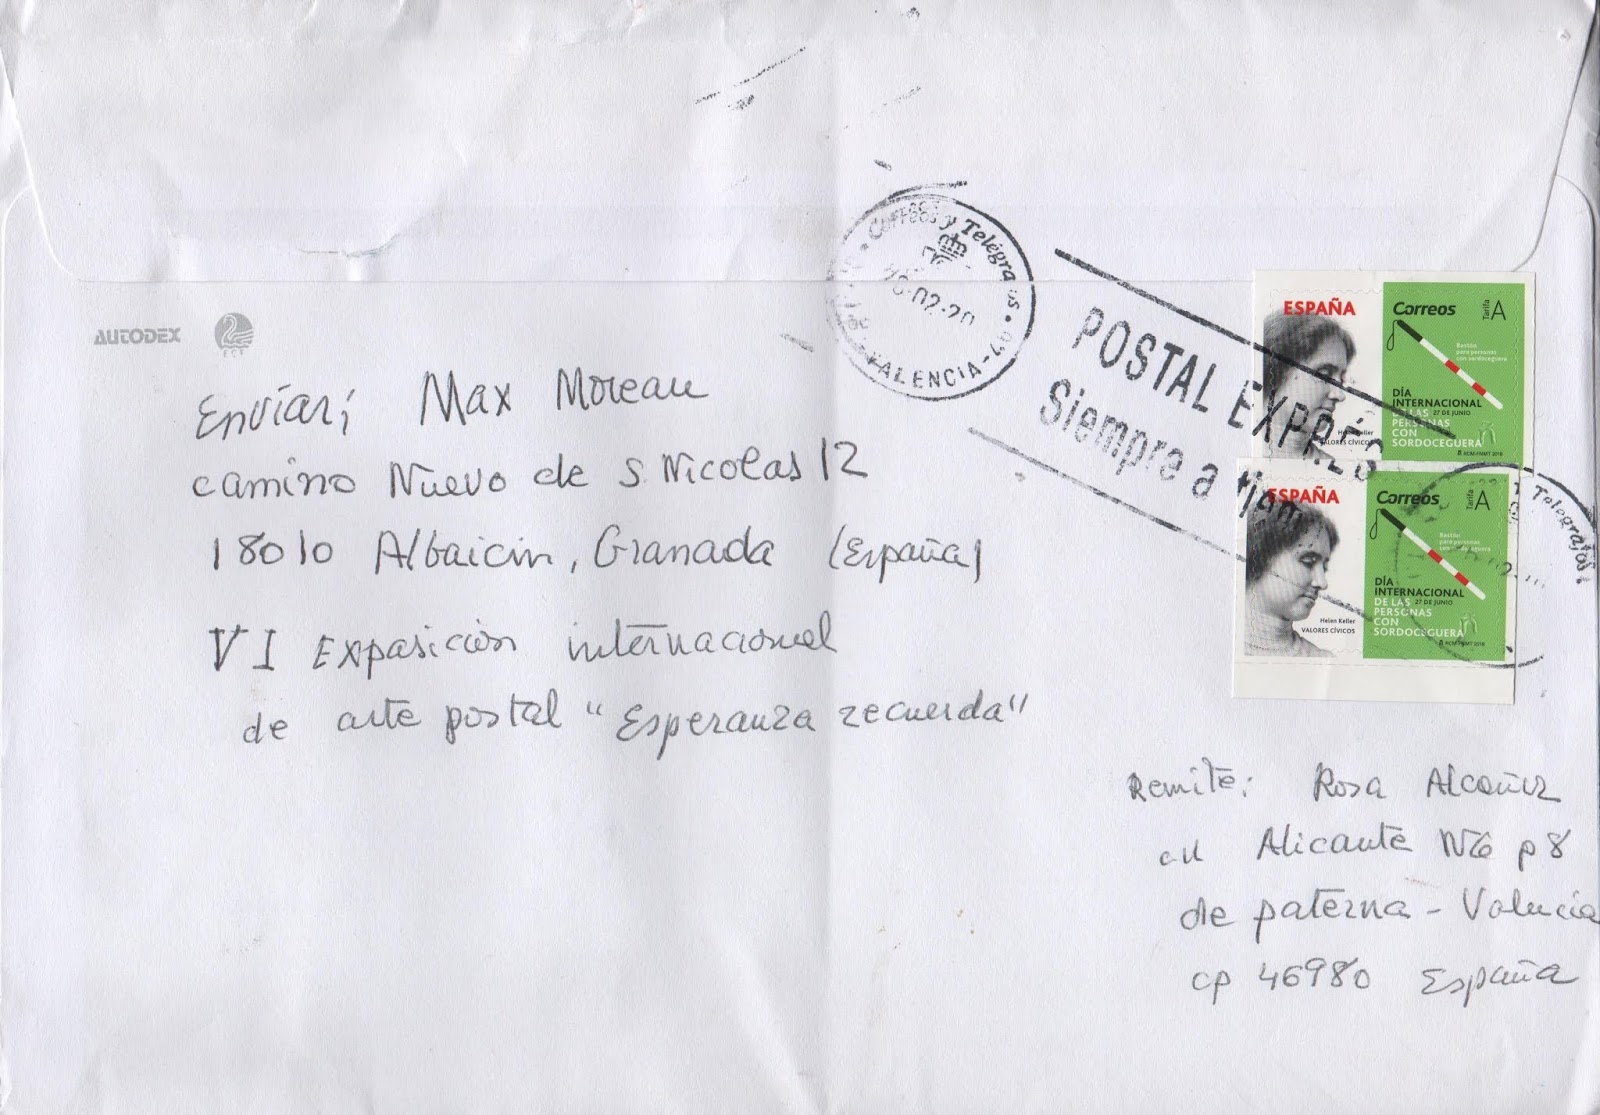 AUTODEX
FCF
Correos y Telégrafos
02-20
VALENCIA
POSTAL EXPRÉS
Siempre a
ESPAÑA
Helen Keller
VALORES CÍVICOS
Correos
Tarifa A
Bastón
para personas
con sordoceguera
DÍA
INTERNACIONAL
DE LAS 27 DE JUNIO
PERSONAS
CON
SORDOCEGUERA
RCM-FNMT 2018
ESPAÑA
Helen Keller
VALORES CÍVICOS
Correos
Tarifa A
Bastón
para personas
con sordoceguera
DÍA
INTERNACIONAL
DE LAS 27 DE JUNIO
PERSONAS
CON
SORDOCEGUERA
RCM-FNMT 2018
Telégrafos
Envíar; Max Moreau
camino Nuevo de S. Nicolas 12
18010 Albaicin, Granada (España)
VI Exposición internacional
de arte postal "Esperanza recuerda"
Remite: Rosa Alcañiz
Alicante Nº6 p8
de paterna - Valencia
cp 46980 España